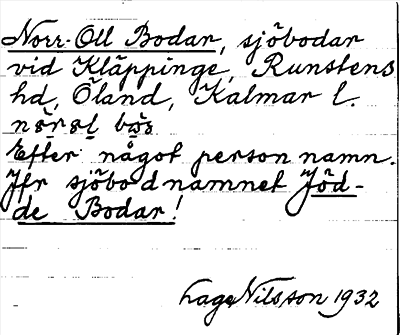 Norr-Oll Bodar, sjöbodar
vid Kläppinge, Runstens
hd, Öland, Kalmar l.
Efter något personnamn.
Jfr sjöbodnamnet Jöd-
de Bodar!
Nilsson 1932